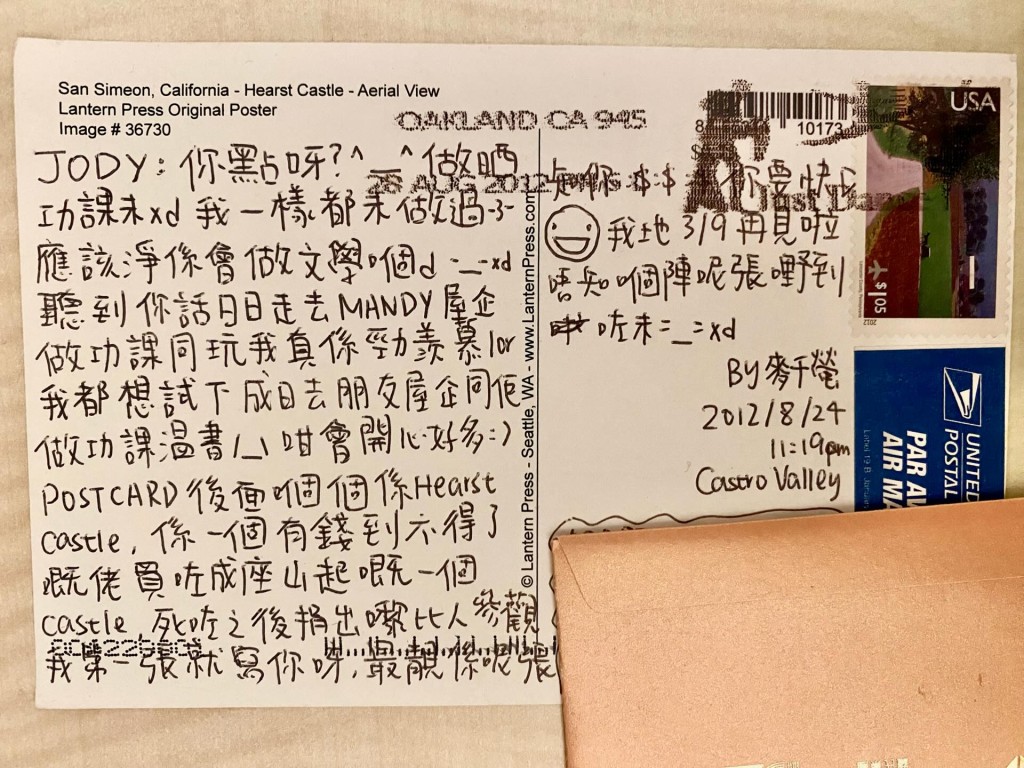 San Simeon, California - Hearst Castle - Aerial View
Lantern Press Original Poster
Image # 36730
JODY: 你點呀?^_^做晒
功課未xd 我一樣都未做過-3-
應該淨係會做文學嗰d -_- xd
聽到你話日日走去MANDY屋企
做功課同玩我真係勁羨慕lor
我都想試下成日去朋友屋企同佢
做功課温書/_\ 咁會開心好多:)
POSTCARD後面嗰個係Hearst
castle, 係一個有錢到不得了
嘅佬買咗成座山起嘅一個
castle 死咗之後捐出嚟比人參觀
我第一張就寫你呀,最靚係呢張
© Lantern Press - Seattle, WA - www.LanternPress.com
OAKLAND CA 945
28 AUG 2012
10173
你 $ $ 你要快
我地 3/9 再見啦
唔知嗰陣呢張嘢到
咗未=_=xd
BY 麥千螢
2012/8/24
11:19pm
Castro Valley
USA
$1.05
2012
UNITED
POSTAL
PAR AV
AIR MA
Label 19-B